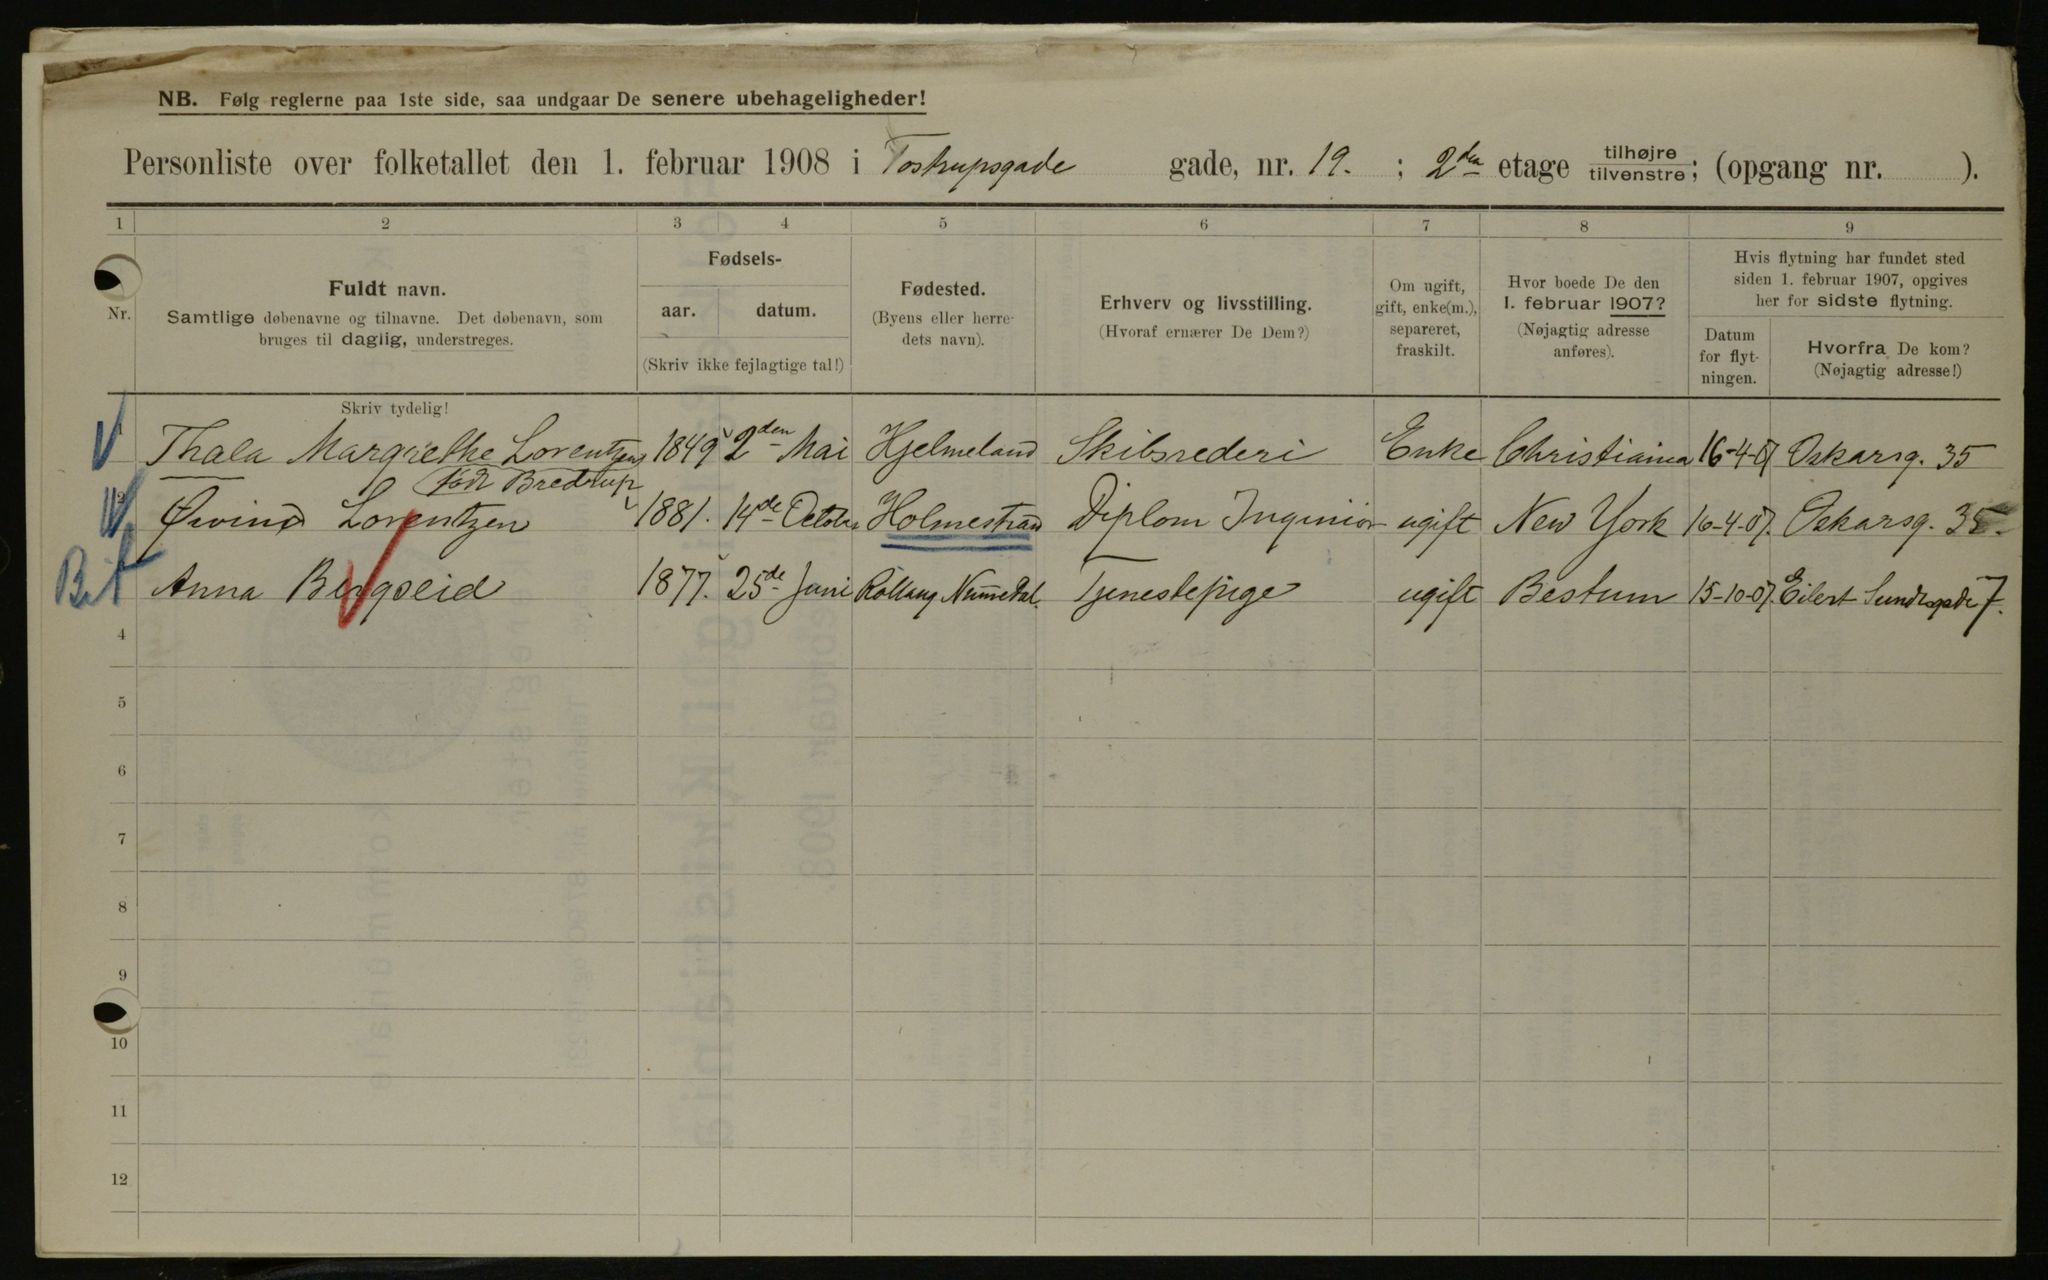 NB. Følg reglerne paa 1ste side, saa undgaar De senere ubehageligheder!
Personliste over folketallet den 1. februar 1908 i Tostrupsgade gade, nr. 19. ; 2den etage tilhøjre tilvenstre; (opgang nr. ).
1 2 3 4 5 6 7 8 9
Nr.
Fuldt navn.
Samtlige døbenavne og tilnavne. Det døbenavn, som
bruges til daglig, understreges.
Fødsels-
aar. datum.
(Skriv ikke fejlagtige tal!)
Fødested.
(Byens eller herre-
dets navn).
Erhverv og livsstilling.
(Hvoraf ernærer De Dem?)
Om ugift,
gift, enke(m.),
separeret,
fraskilt.
Hvor boede De den
1. februar 1907?
(Nøjagtig adresse
anføres).
Hvis flytning har fundet sted
siden 1. februar 1907, opgives
her for sidste flytning.
Datum
for flyt-
ningen.
Hvorfra De kom?
(Nøjagtig adresse!)
Skriv tydelig!
1 Thala Margrethe Lorentzen 1849 2den Mai Hjelmeland Skibsrederi Enke Christiania 16-4-07 Oskarsg. 35
født Bredrup
2 Øivind Lorentzen 1881. 14de October Holmestrand Diplom Ingeniør ugift New York 16-4-07. Oskarsg. 35.
Bit Anna Bergseid 1877. 25de Juni Rollaug Numedal. Tjenestepige ugift Bestum 15-10-07. Eilert Sundtsgade 7.
4
5
6
7
8
9
10
11
12